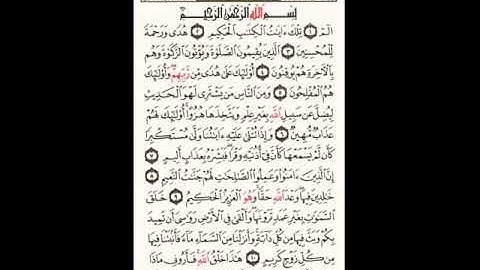 بِسْمِ ٱللَّهِ ٱلرَّحْمَٰنِ ٱلرَّحِيمِ
الٓمٓ ١ تِلْكَ ءَايَٰتُ ٱلْكِتَٰبِ ٱلْحَكِيمِ ٢ هُدًى وَرَحْمَةً
لِّلْمُحْسِنِينَ ٣ ٱلَّذِينَ يُقِيمُونَ ٱلصَّلَوٰةَ وَيُؤْتُونَ ٱلزَّكَوٰةَ وَهُم
بِٱلْءَاخِرَةِ هُمْ يُوقِنُونَ ٤ أُو۟لَٰٓئِكَ عَلَىٰ هُدًى مِّن رَّبِّهِمْ وَأُو۟لَٰٓئِكَ
هُمُ ٱلْمُفْلِحُونَ ٥ وَمِنَ ٱلنَّاسِ مَن يَشْتَرِى لَهْوَ ٱلْحَدِيثِ
لِيُضِلَّ عَن سَبِيلِ ٱللَّهِ بِغَيْرِ عِلْمٍ وَيَتَّخِذَهَا هُزُوًا أُو۟لَٰٓئِكَ لَهُمْ
عَذَابٌ مُّهِينٌ ٦ وَإِذَا تُتْلَىٰ عَلَيْهِ ءَايَٰتُنَا وَلَّىٰ مُسْتَكْبِرًا
كَأَن لَّمْ يَسْمَعْهَا كَأَنَّ فِىٓ أُذُنَيْهِ وَقْرًا فَبَشِّرْهُ بِعَذَابٍ أَلِيمٍ ٧
إِنَّ ٱلَّذِينَ ءَامَنُوا۟ وَعَمِلُوا۟ ٱلصَّٰلِحَٰتِ لَهُمْ جَنَّٰتُ ٱلنَّعِيمِ ٨
خَٰلِدِينَ فِيهَا وَعْدَ ٱللَّهِ حَقًّا وَهُوَ ٱلْعَزِيزُ ٱلْحَكِيمُ ٩ خَلَقَ
ٱلسَّمَٰوَٰتِ بِغَيْرِ عَمَدٍ تَرَوْنَهَا وَأَلْقَىٰ فِى ٱلْأَرْضِ رَوَٰسِىَ أَن تَمِيدَ
بِكُمْ وَبَثَّ فِيهَا مِن كُلِّ دَآبَّةٍ وَأَنزَلْنَا مِنَ ٱلسَّمَآءِ مَآءً فَأَنۢبَتْنَا فِيهَا
مِن كُلِّ زَوْجٍ كَرِيمٍ ١٠ هَٰذَا خَلْقُ ٱللَّهِ فَأَرُونِى مَاذَا